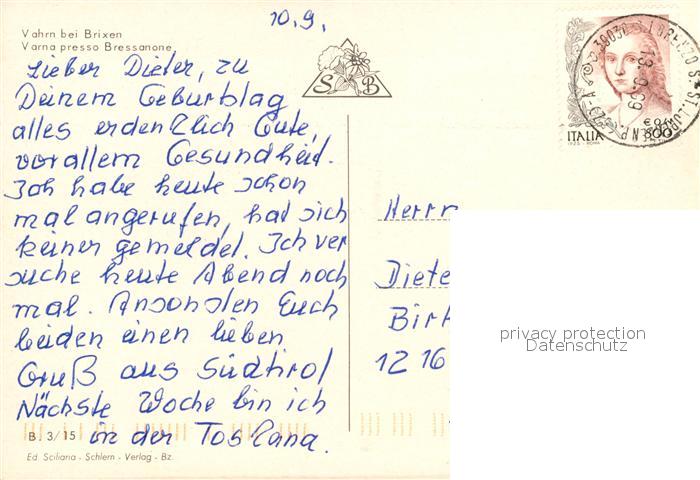 10.9.
Vahrn bei Brixen
Varna presso Bressanone
Lieber Dieter, zu
Deinem Geburtstag
alles erdenklich Gute,
vor allem Gesundheit.
Ich habe heute schon
mal angerufen, hat sich
keiner gemeldet. Ich ver
suche heute Abend noch
mal. Ansonsten Euch
beiden einen lieben
Gruß aus Südtirol
Nächste Woche bin ich
in der Toskana.
B. 3/15
Ed. Sciliana - Schlern - Verlag - Bz.
S B
ITALIA
€ 0,41
800
Herrn
Diete
Birk
12 16
privacy protection
Datenschutz